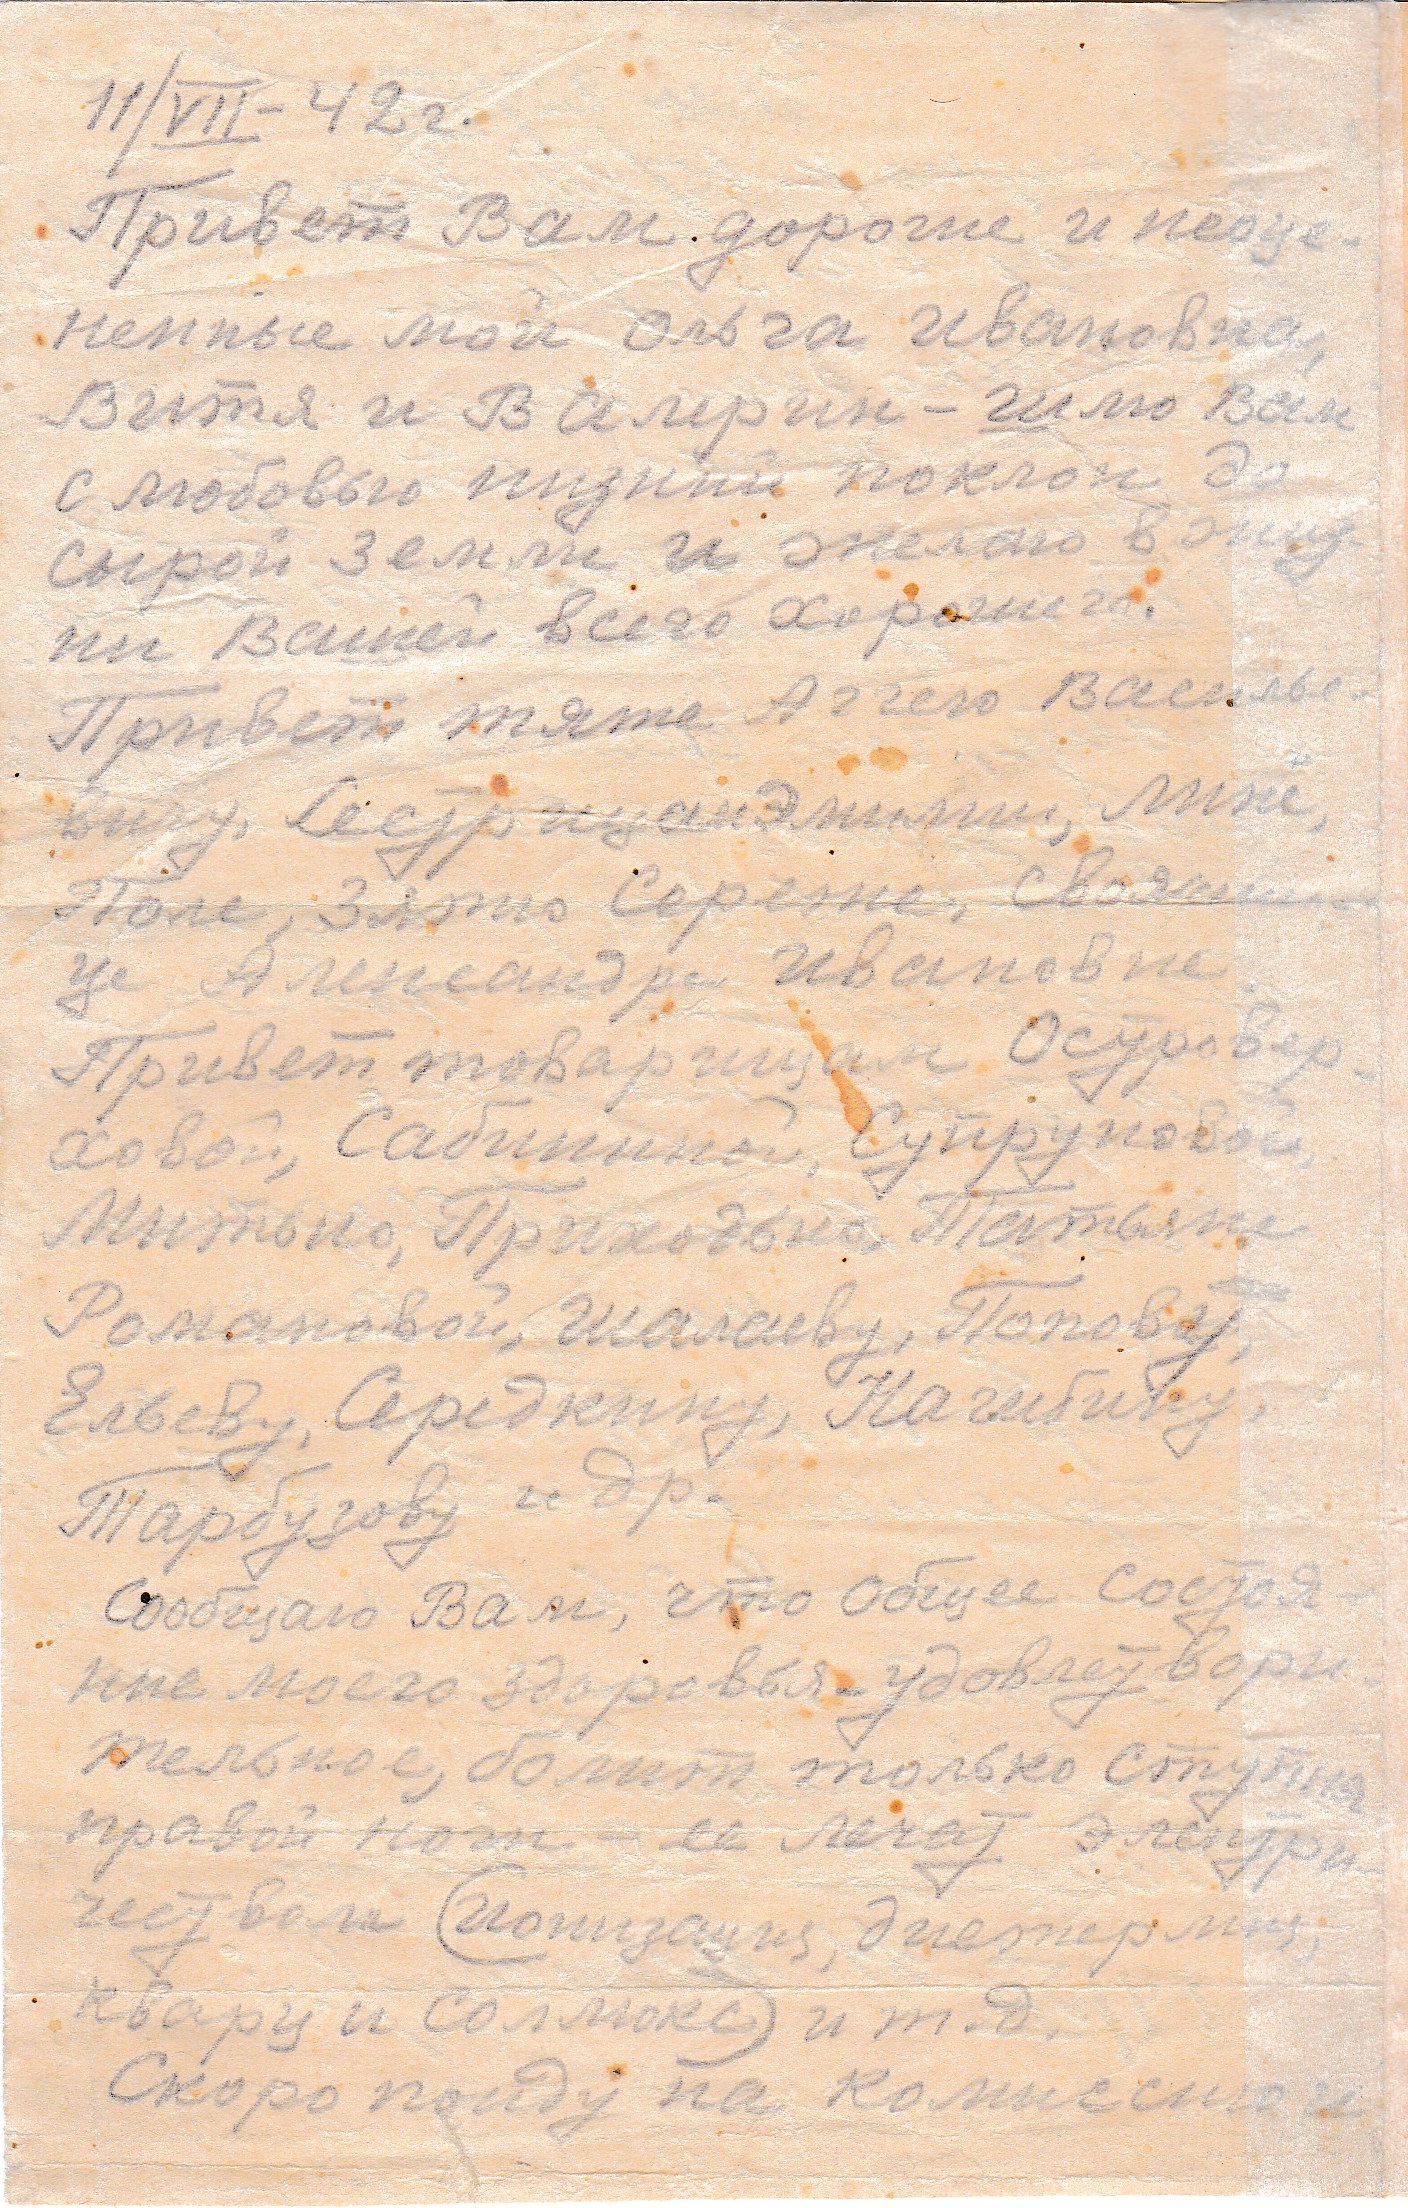 11/VII-42г.
Привет Вам дорогие и неоце-
ненные мои Ольга Ивановна,
Витя и Валерик - шлю Вам
с любовью низкий поклон до
сырой земли и желаю в жиз-
ни Вашей всего хорошего.
Привет тяте Аггею Василье-
вичу, Сестрицам Эмилии, Лине,
Поле, Зятю Сереже, свояченни-
це Александре Ивановне
Привет товарищам Островер-
ховой, Сабининой, Супруновой,
Митько, Приходько, Татьяне
Романовой, Шалаеву, Попову,
Ельеву, Середкину, Нагибину,
Тарбузову и др.
Сообщаю Вам, что общее состоя-
ние моего здоровья - удовлетвори-
тельное, болит только ступня
правой ноги - ее лечат электри-
чеством (Ионизация, диатермия,
кварц и соллюкс) и т.д.
Скоро пойду на комиссию и